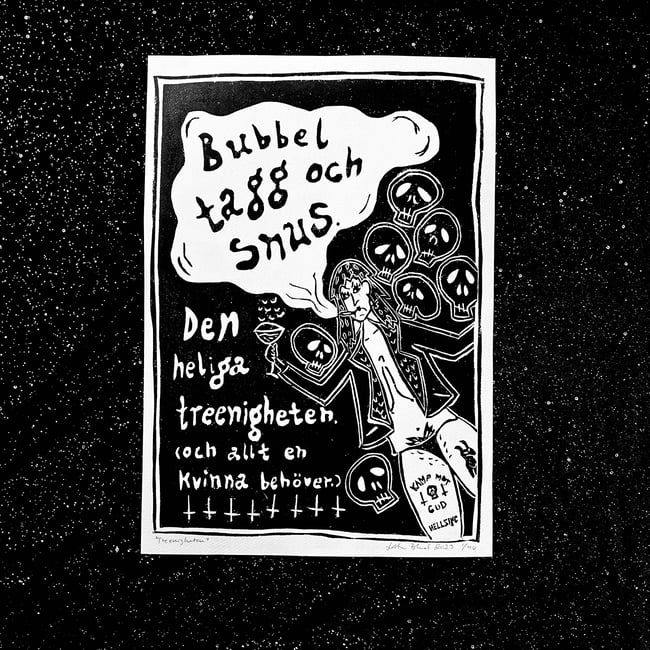 Bubbel
tagg och
snus.
Den
heliga
treenigheten.
(och allt en
kvinna behöver.)
KAMP MOT
GUD
HELLSING
"Treenigheten"
2023